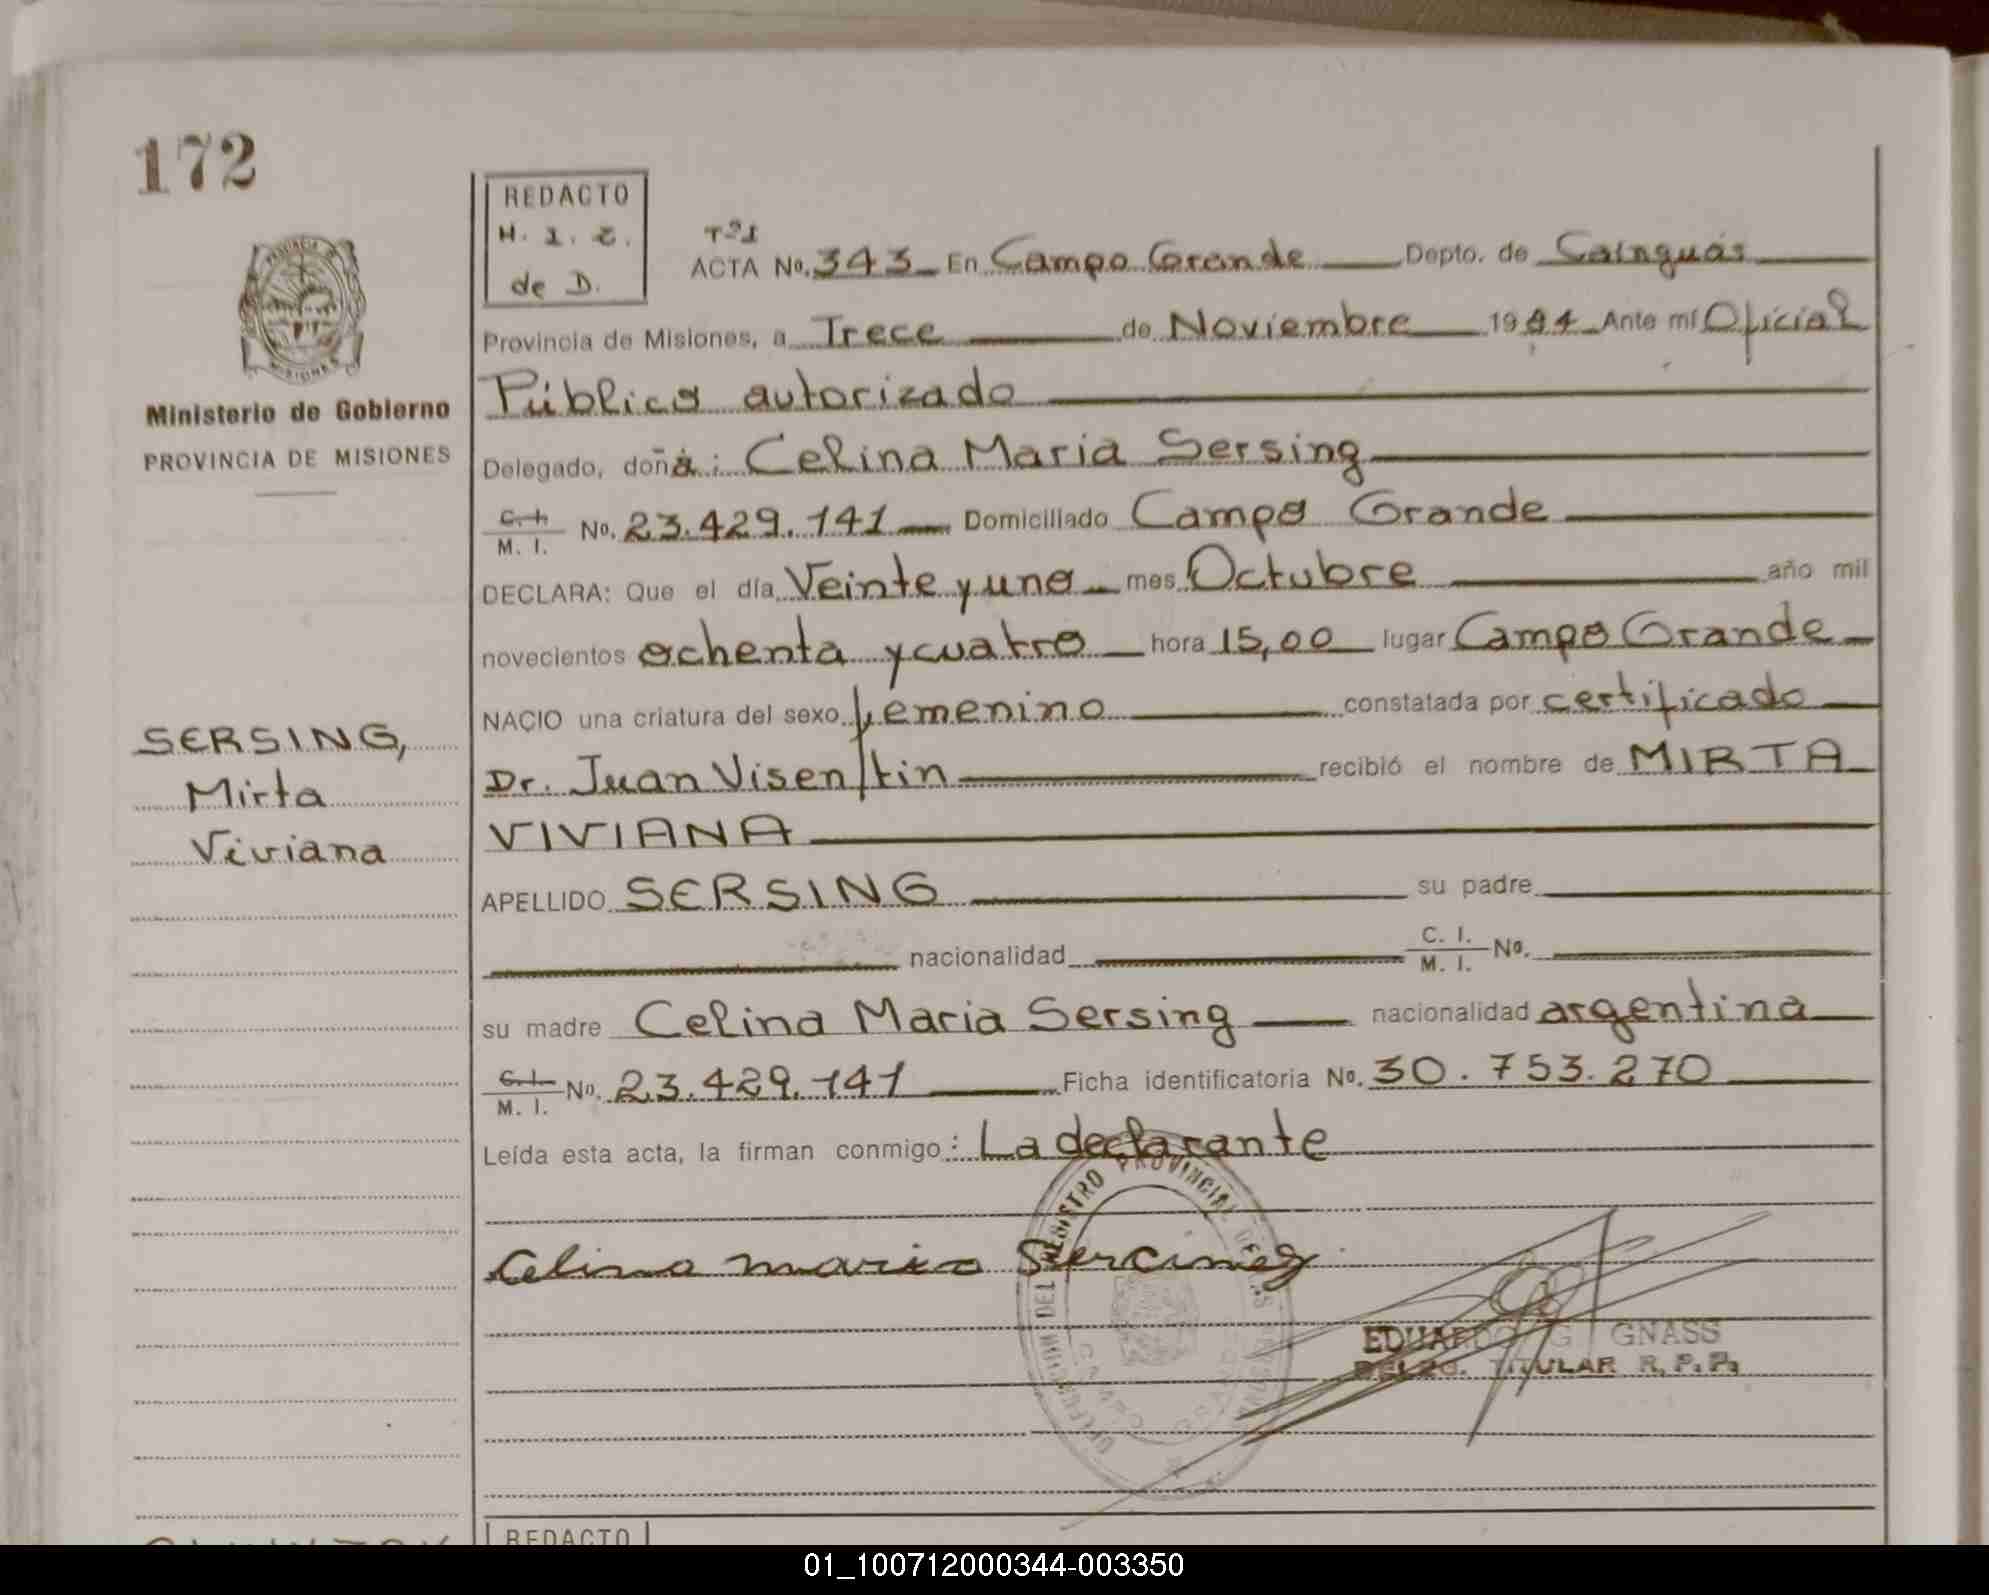 172
REDACTO
H. I. E.
de D.
Tº1
ACTA No. 343 En Campo Grande Depto. de Cainguás
Provincia de Misiones, a Trece de Noviembre 1984 Ante mí Oficial
Público autorizado
Ministerio de Gobierno
PROVINCIA DE MISIONES
Delegado, doña: Celina Maria Sersing
C. I.
M. I. No. 23.429.141 Domiciliado Campo Grande
DECLARA: Que el día Veinte y uno mes Octubre año mil
novecientos ochenta y cuatro hora 15,00 lugar Campo Grande
NACIO una criatura del sexo femenino constatada por certificado
SERSING,
Mirta
Viviana
Dr. Juan Visentin recibió el nombre de MIRTA
VIVIANA
APELLIDO SERSING su padre
nacionalidad C. I.
M. I. No.
su madre Celina Maria Sersing nacionalidad argentina
C. I.
M. I. No. 23.429.141 Ficha identificatoria No. 30.753.270
Leída esta acta, la firman conmigo: La declarante
Celina maria Sercineg
EDUARDO G. GNASS
DELEG. TITULAR R. P. P.
REGISTRO PROVINCIAL DE LAS PERSONAS
CAMPO GRANDE
REDACTO
01_100712000344-003350